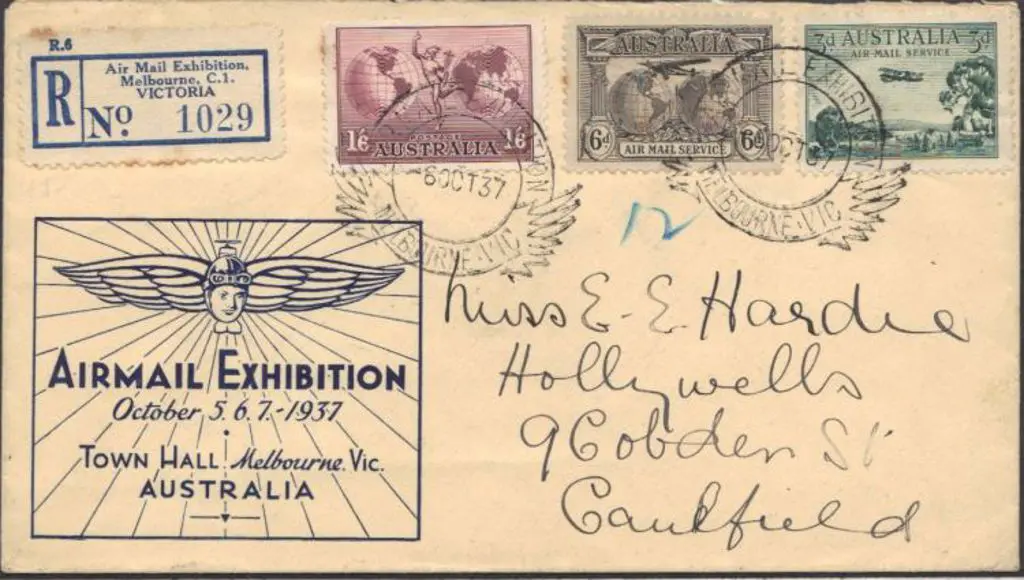 R.6
Air Mail Exhibition,
Melbourne, C.1.
VICTORIA
R No. 1029
1/6 POSTAGE 1/6
AUSTRALIA
AUSTRALIA
6d AIR MAIL SERVICE 6d
3d AUSTRALIA 3d
AIR MAIL SERVICE
6 OCT 37
MELBOURNE.VIC
OCT 37
MELBOURNE.VIC
12
AIRMAIL EXHIBITION
October 5. 6. 7.-1937
TOWN HALL Melbourne. Vic.
AUSTRALIA
Miss E. E. Hardie
Hollywells
9 Cobden St
Caulfield